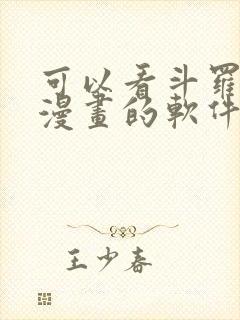 可以看斗羅
漫畫的軟件
王少春